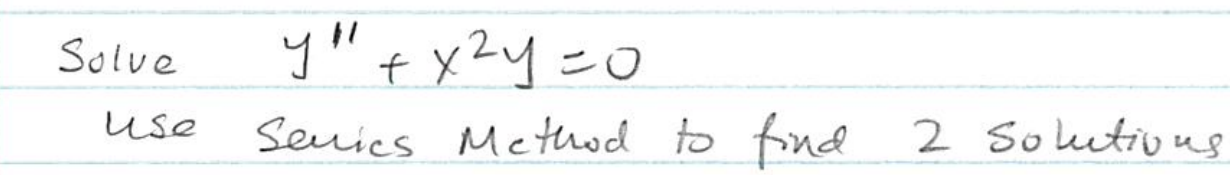 Solve y'' + x²y = 0
use Series Method to find 2 Solutions